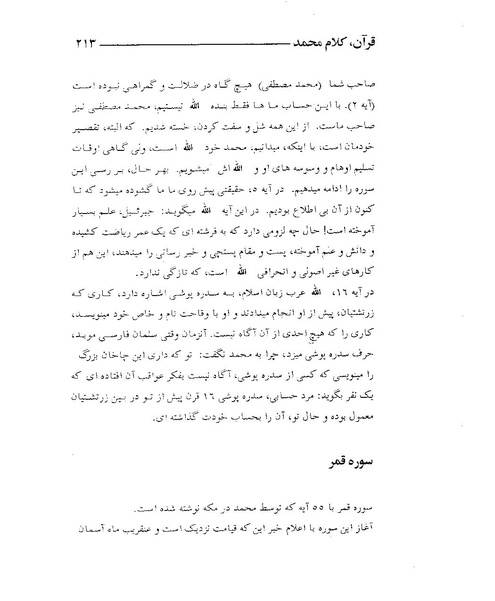 قرآن، کلام محمد ۲۱۳
صاحب شما (محمد مصطفی) هیچ گاه در ضلالت و گمراهی نبوده است
(آیه ۲). با این حساب ما ها فقط بنده الله نیستیم، محمد مصطفی نیز
صاحب ماست. از این همه شل و سفت کردن، خسته شدیم. که البته، تقصیر
خودمان است، با اینکه، میدانیم، محمد خود الله است، ولی گاهی اوقات
تسلیم اوهام و وسوسه های او و الله اش میشویم. بهر حال، بر رسی این
سوره را ادامه میدهیم. در آیه ۵، حقیقتی پیش روی ما ما گشوده میشود که تا
کنون از آن بی اطلاع بودیم. در این آیه الله میگوید: جبرئیل، علم بسیار
آموخته است! حال چه لزومی دارد که به فرشته ای که یک عمر ریاضت کشیده
و دانش و علم آموخته، پست و مقام پستچی و خبر رسانی را میدهند، این هم از
کارهای غیر اصولی و انحرافی الله است، که تازگی ندارد.
در آیه ۱۶، الله عرب زبان اسلام، به سدره پوشی اشاره دارد، کاری که
زرتشتیان، پیش از او انجام میدادند و او با وقاحت تام و خاص خود مینویسد،
کاری را که هیچ احدی از آن آگاه نیست. آنزمان وقتی سلمان فارسی موبد،
حرف سدره پوشی میزد، چرا به محمد نگفت: تو که داری این چاخان بزرگ
را مینویسی که کسی از سدره پوشی، آگاه نیست بفکر عواقب آن افتاده ای که
یک نفر بگوید: مرد حسابی، سدره پوشی ۱۶ قرن پیش از تو در بین زرتشتیان
معمول بوده و حال تو، آن را بحساب خودت گذاشته ای.
سوره قمر
سوره قمر با ۵۵ آیه که توسط محمد در مکه نوشته شده است.
آغاز این سوره با اعلام خبر این که قیامت نزدیک است و عنقریب ماه آسمان